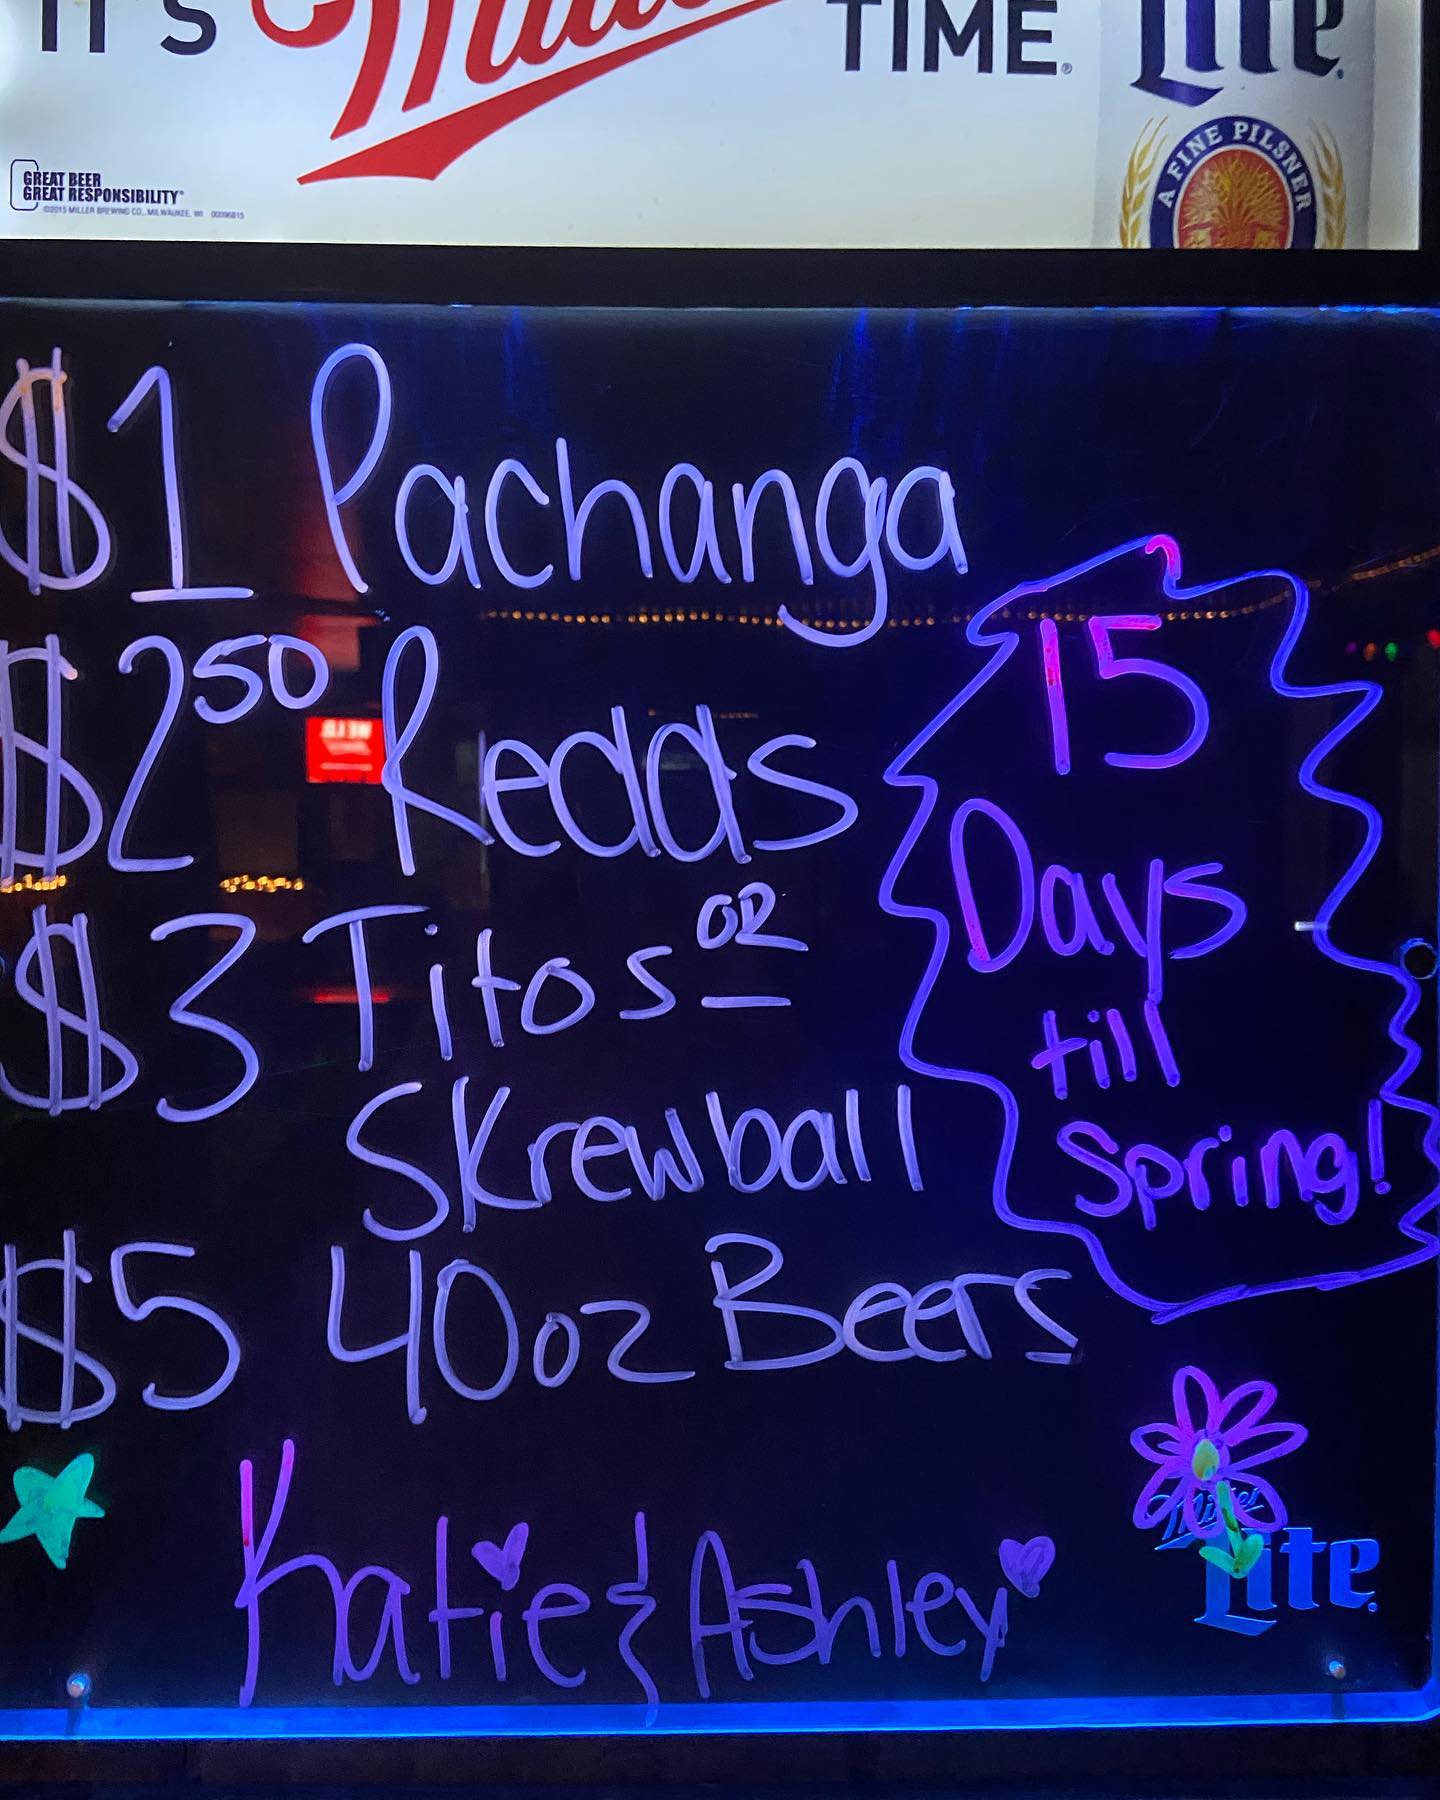 IT'S Miller TIME.®
Lite
A FINE PILSNER
GREAT BEER
GREAT RESPONSIBILITY®
©2015 MILLER BREWING CO., MILWAUKEE, WI
$1 Pachanga
$2 50 Redds
$3 Titos OR
Skrewball
$5 40oz Beers
15
Days
till
Spring!
Katie & Ashley
Miller
Lite.